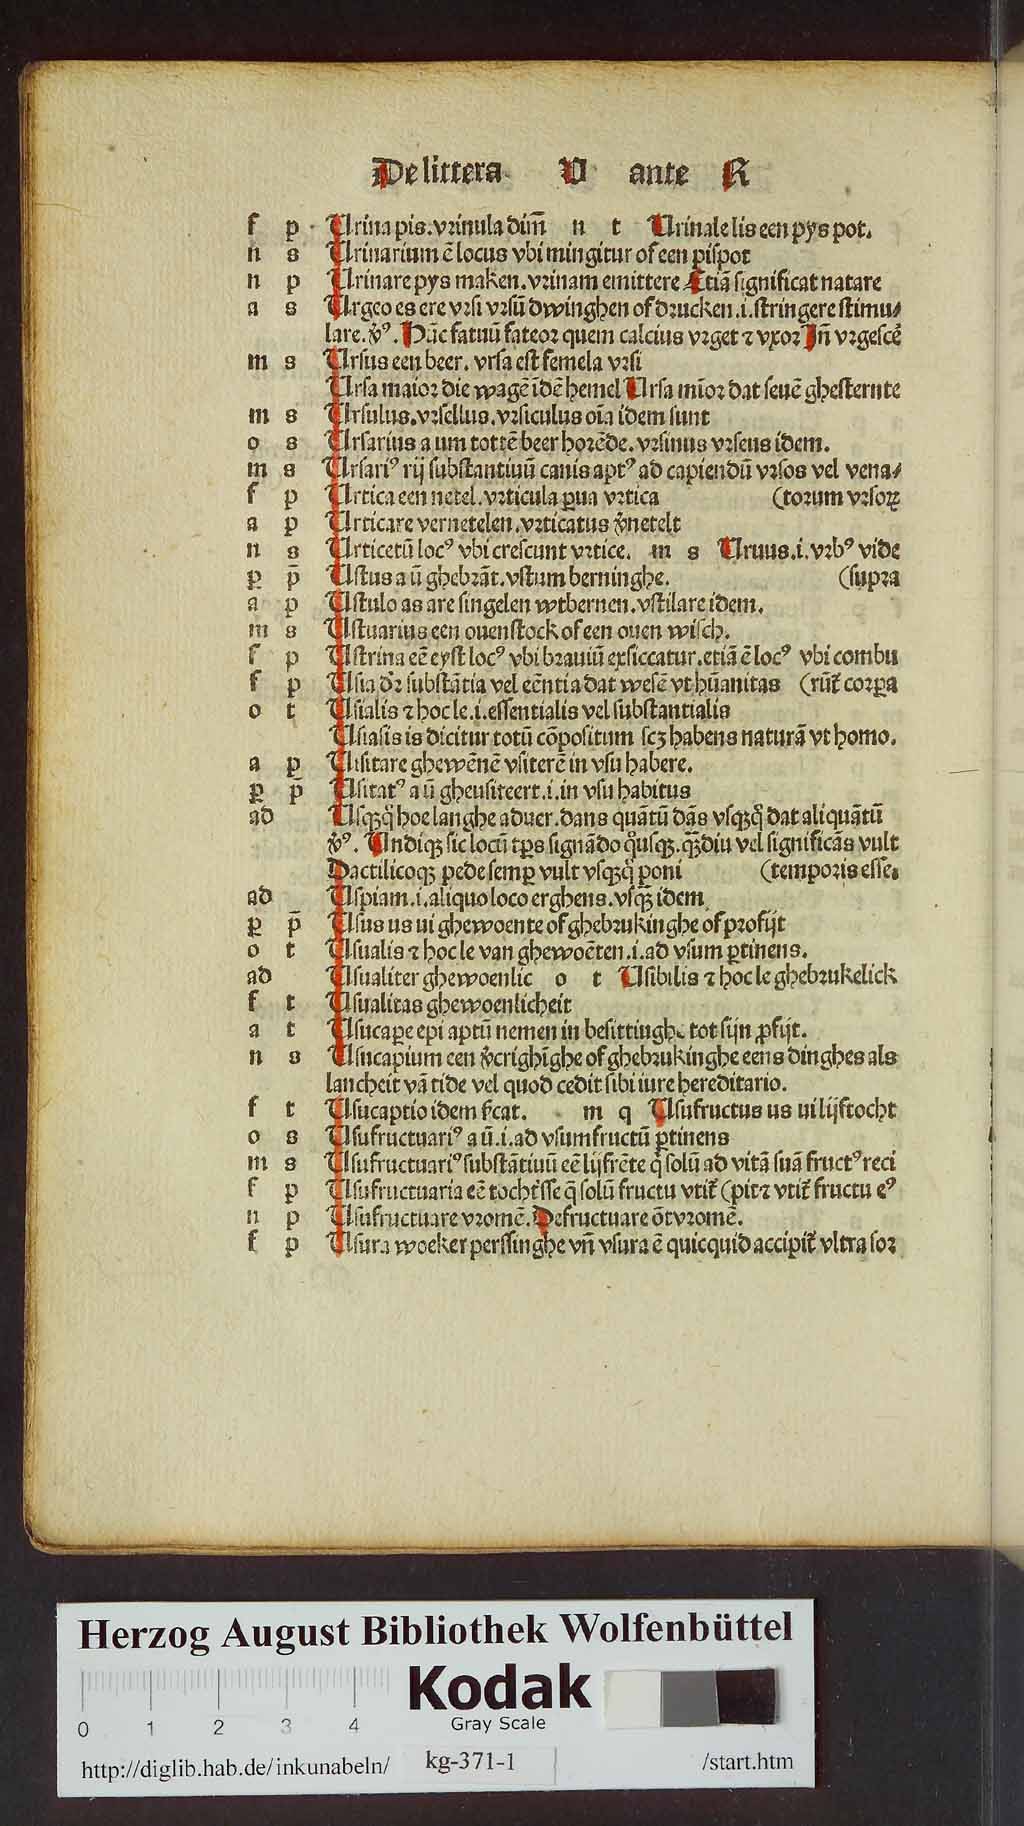 De littera U ante R
f p Urina pis. vrinula dim̄ n t Urinale lis een pys pot.
n s Urinarium ē locus vbi mingitur of een pispot
n p Urinare pys maken. vrinam emittere Etiā significat natare
a s Urgeo es ere vrsi vrsū dwinghen of drucken .i. stringere stimu⸗
lare. v̓ꝰ. Hāc fatuū fateor quem calcius vrget ⁊ vxor Jn̄ vrgescē
m s Ursus een beer. vrsa est femela vrsi
Ursa maior die wagē īdē hemel Ursa mīor dat seuē ghesternte
m s Ursulus. vrsellus. vrsiculus oīa idem sunt
o s Ursarius a um tottē beer horēde. vrsinus vrseus idem.
m s Ursariꝰ rij substantiuū canis aptꝰ ad capiendū vrsos vel vena⸗
f p Urtica een netel. vrticula ꝑua vrtica (torum vrsoꝝ
a p Urticare vernetelen. vrticatus v̓netelt
n s Urticetū locꝰ vbi crescunt vrtice. m s Uruus .i. vrbꝰ vide
ꝑ p̄ Ustus a ū ghebrāt. vstum berninghe. (supra
a p Ustulo as are singelen wtbernen. vstilare idem.
m s Ustuarius een ouenstock of een ouen wisch.
f p Ustrina eē eyst locꝰ vbi brauiū exsiccatur. etiā ē locꝰ vbi combu
f p Usia dr̄ substātia vel eēntia dat wesē vt hūanitas (rūt̄ corꝑa
o t Usialis ⁊ hoc le .i. essentialis vel substantialis
Usiasis is dicitur totū cōpositum scꝫ habens naturā vt homo.
a p Usitare ghewēnē vsiterē in vsu habere.
ꝑ p̄ Usitatꝰ a ū gheusiteert .i. in vsu habitus
ad Usqꝫq̊ hoe langhe aduer. dans quātū dās vsqꝫq̊ dat aliquātū
v̓ꝰ. Undiqꝫ sic locū tp̄s signādo q̊usqꝫ. qꝫdiu vel significās vult
Dactilicoqꝫ pede semꝑ vult vsqꝫq̊ poni (temporis esse.
ad Uspiam .i. aliquo loco erghens. vsqꝫ idem
ꝑ p̄ Usus us ui ghewoente of ghebrukinghe of profijt
o t Usualis ⁊ hoc le van ghewoēten .i. ad vsum ꝑtinens.
ad Usualiter ghewoenlic o t Usibilis ⁊ hoc le ghebrukelick
f t Usualitas ghewoenlicheit
a t Usucaꝑe epi aptū nemen in besittinghe tot sijn ꝓfijt.
n s Usucapium een v̓crighīghe of ghebrukinghe eens dinghes als
lancheit vā tide vel quod cedit sibi iure hereditario.
f t Usucaptio idem s̄cat. m q Usufructus us ui lijftocht
o s Usufructuariꝰ a ū .i. ad vsumfructū ꝑtinens
m s Usufructuariꝰ substātiuū eē lijfrēte q̄ solū ad vitā suā fructꝰ reci
f p Usufructuaria eē tocht̓sse q̄ solū fructu vtit̄ (pit ⁊ vtit̄ fructu eꝰ
n p Usufructuare vromē. Defructuare ōtvromē.
f p Usura woeker perssinghe vn̄ vsura ē quicquid accipit̄ vltra sor
Herzog August Bibliothek Wolfenbüttel
Kodak
Gray Scale
0 1 2 3 4
http://diglib.hab.de/inkunabeln/ kg-371-1 /start.htm